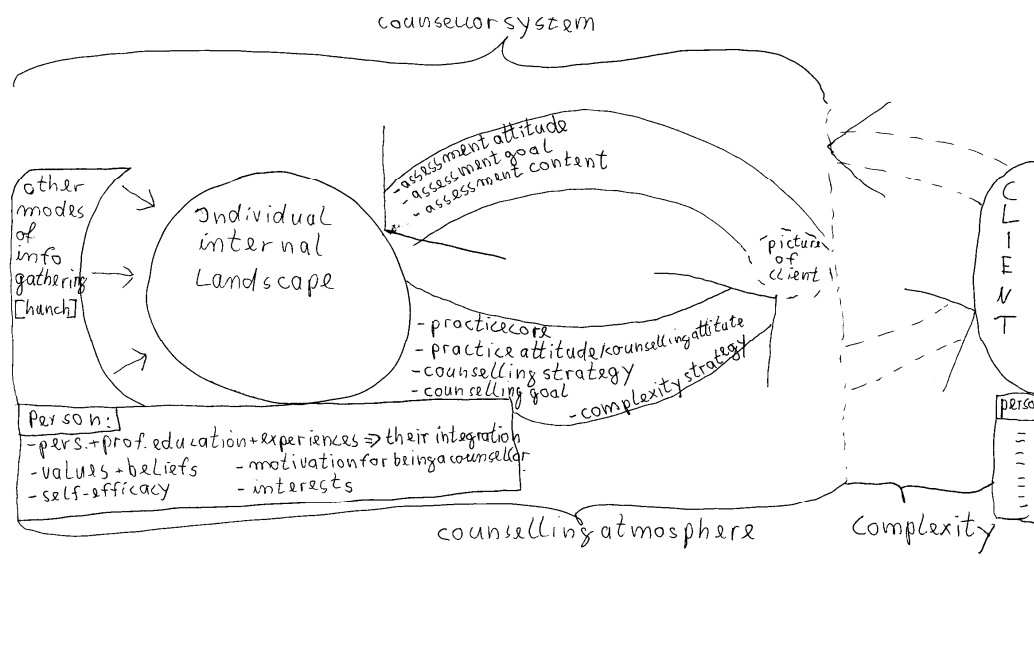 counsellor system
other
modes
of
info
gathering
[hunch]
Individual
internal
Landscape
-assessment attitude
-assessment goal
- assessment content
picture
of
client
CLIENT
-practicecore
-practice attitude/counselling attitute
-counselling strategy
-counselling goal
-complexity strategy
Person:
-pers.+prof.education+experiences => their integration
-values+beliefs -motivation for being a counsellor
-self-efficacy -interests
perso
counselling atmosphere
complexity